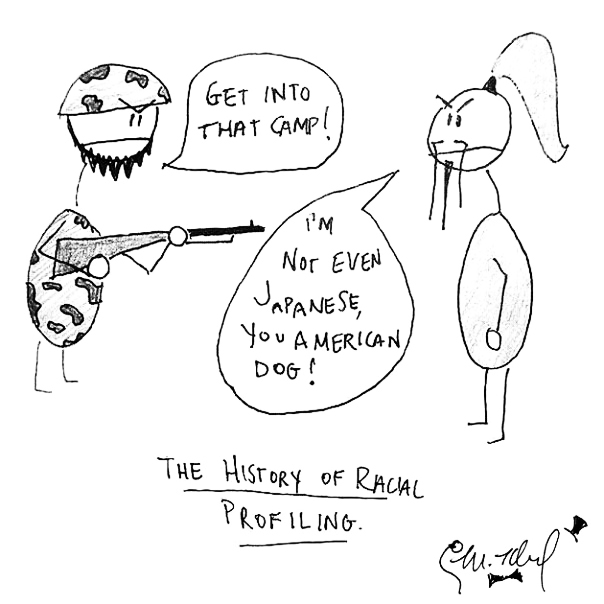 GET INTO
THAT CAMP!
I'M
NOT EVEN
JAPANESE,
YOU AMERICAN
DOG!
THE HISTORY OF RACIAL
PROFILING.